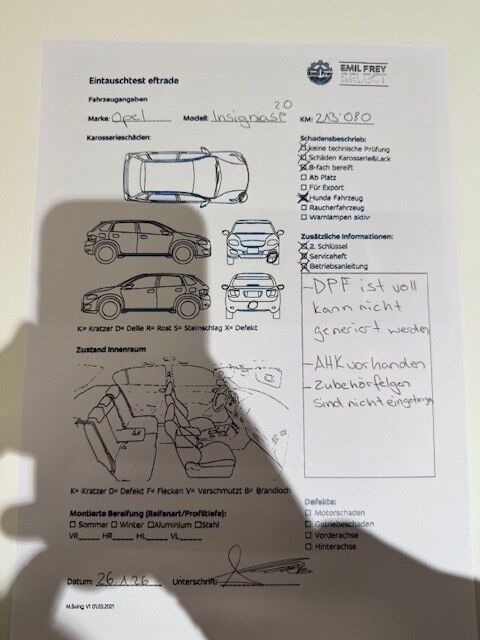 EMIL FREY
Eintauschtest eftrade
Fahrzeugangaben
2.0
Marke: Opel Modell: Insignia SP KM: 213'080
Karosserieschäden:
Schadensbeschrieb:
keine technische Prüfung
Schäden Karosserie&Lack
8-fach bereift
Ab Platz
Für Export
Hunde Fahrzeug
Raucherfahrzeug
Warnlampen aktiv
Zusätzliche Informationen:
2. Schlüssel
Serviceheft
Betriebsanleitung
K= Kratzer D= Delle R= Rost S= Steinschlag X= Defekt
- DPF ist voll
kann nicht
generiert werden
- AHK vorhanden
- Zubehörfelgen
sind nicht eingetragen
Zustand Innenraum
K= Kratzer D= Defekt F= Flecken V= Verschmutzt B= Brandloch
Montierte Bereifung (Reifenart/Profiltiefe):
Sommer Winter Aluminium Stahl
VR HR HL VL
Defekte:
Motorschaden
Getriebeschaden
Vorderachse
Hinterachse
Datum: 26.1.26 Unterschrift:
M.Suing V1 01.03.2021